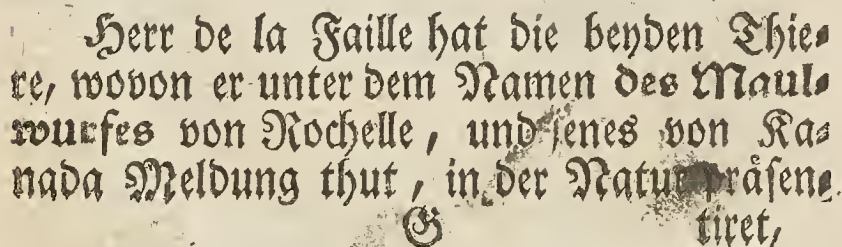 Herr de la Faille hat die beyden Thie-
re, wovon er unter dem Namen des Maul-
wurfes von Rochelle, und jenes von Ka-
nada Meldung thut, in der Natur präsen-
G tiret,